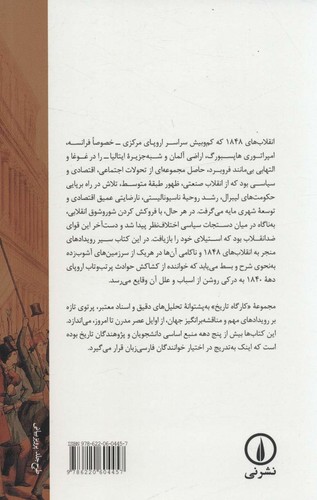 انقلاب‌های ۱۸۴۸ که کم‌وبیش سراسر اروپای مرکزی ــ خصوصاً فرانسه،
امپراتوری هاپسبورگ، اراضی آلمان و شبه‌جزیرهٔ ایتالیا ــ را در غوغا و
التهابی بی‌مانند فروبرد، حاصل مجموعه‌ای از تحولات اجتماعی، اقتصادی و
سیاسی بود که از انقلاب صنعتی، ظهور طبقهٔ متوسط، تلاش در راه برپایی
حکومت‌های لیبرال، رشد روحیهٔ ناسیونالیستی، نارضایتی عمیق اقتصادی و
توسعهٔ شهری مایه می‌گرفت. در هر حال، با فروکش کردن شوروشوق انقلابی،
به‌ناگاه در میان دستجات سیاسی اختلاف‌نظر پیدا شد و دست‌آخر این قوای
ضدانقلاب بود که استیلای خود را بازیافت. در این کتاب سیر رویدادهای
منجر به انقلاب‌های ۱۸۴۸ و ناکامی آن‌ها در هریک از سرزمین‌های آشوب‌زده
به‌نحوی شرح و بسط می‌یابد که خواننده از کشاکش حوادث پرتب‌وتاب اروپای
دههٔ ۱۸۴۰ به درکی روشن از اسباب و علل آن وقایع می‌رسد.
مجموعهٔ «کارگاه تاریخ» به‌پشتوانهٔ تحلیل‌های دقیق و اسناد معتبر، پرتوی تازه
بر رویدادهای مهم و مناقشه‌برانگیز جهان، از اوایل عصر مدرن تا امروز، می‌اندازد.
این کتاب‌ها بیش از پنج دهه منبع اساسی دانشجویان و پژوهندگان تاریخ بوده
است که اینک به‌تدریج در اختیار خوانندگان فارسی‌زبان قرار می‌گیرد.
طرح جلد: پرویز بیانی
ISBN: 978-622-06-0445-7
9 786220 604457
نشرنی